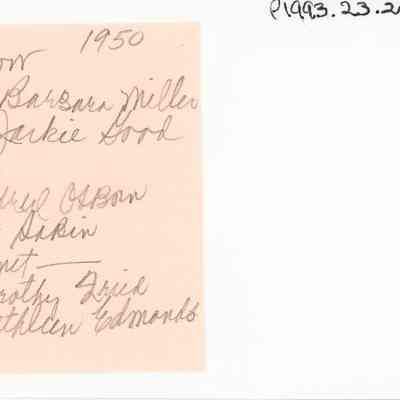 P1993.23.2
1950
ow
Barbara Miller
Jackie Good
dred Osborn
Dabin
net —
rothy Fried
athleen Edmonds